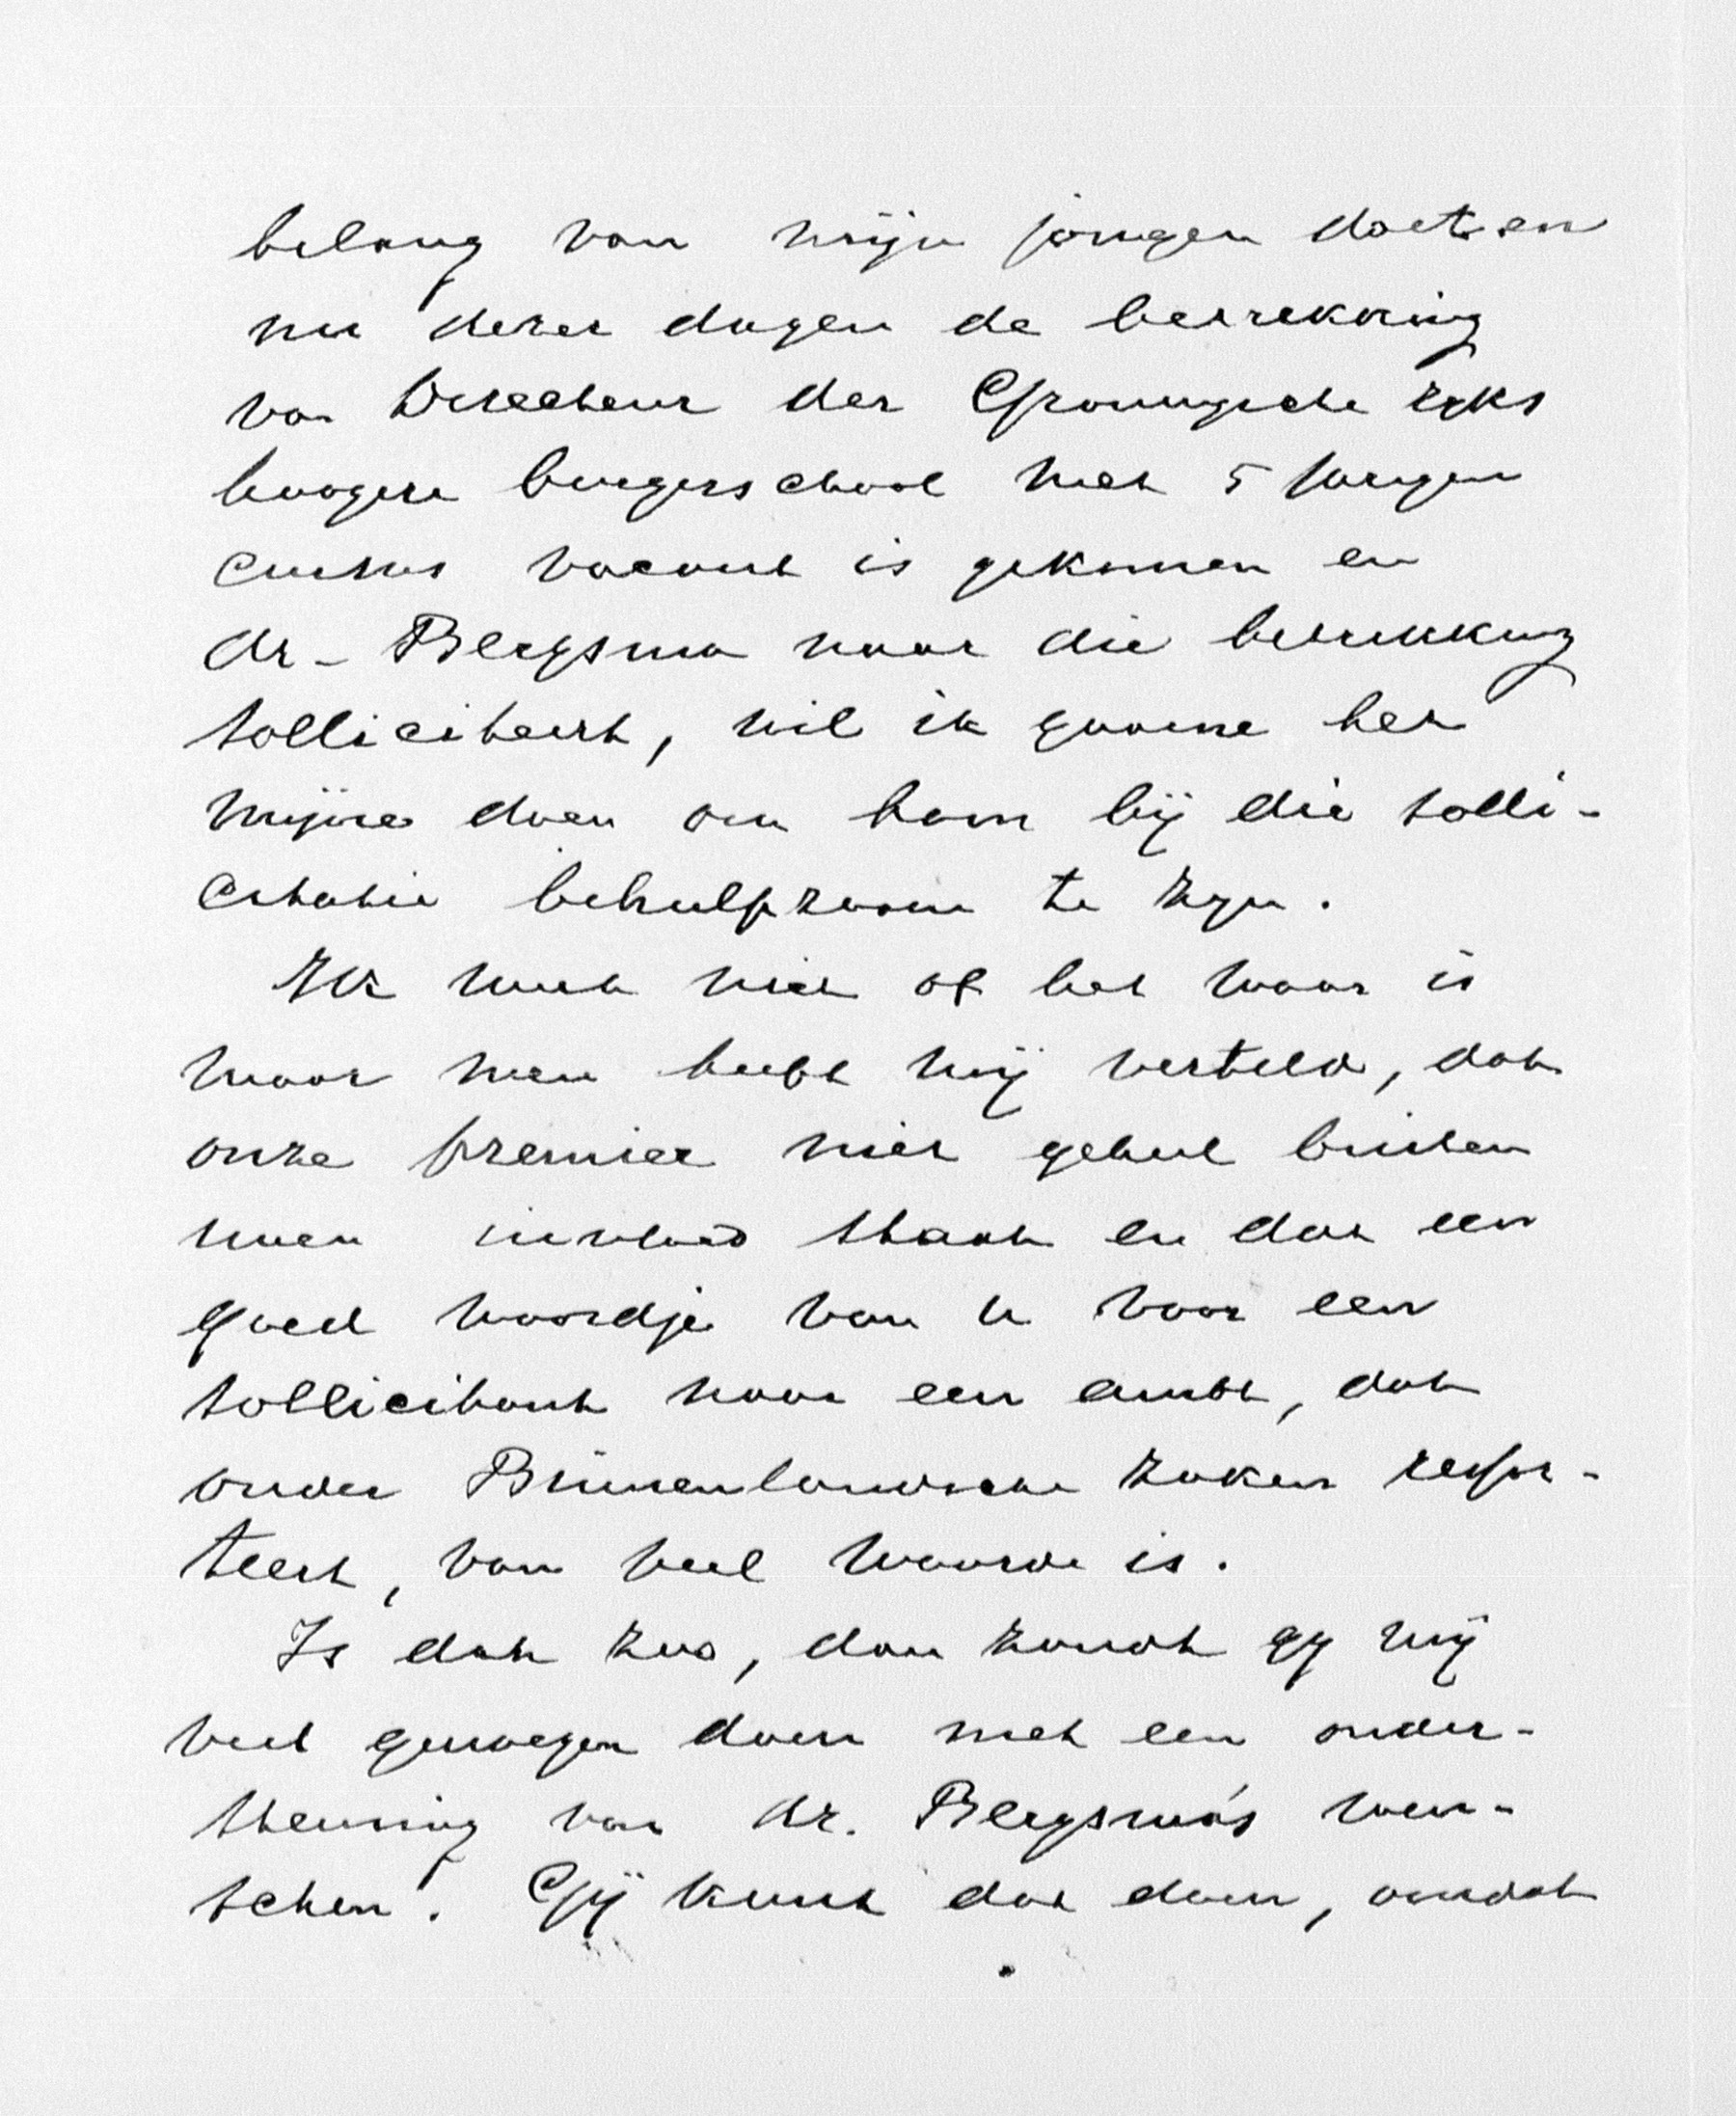 belang van mijn jongen doet en
nu dezer dagen de betrekking
van Directeur der Groningsche Rijks
hoogere burgerschool met 5 jarigen
cursus vacant is gekomen en
dr. Bergsma naar die betrekking
solliciteert, wil ik gaarne het
mijne doen om hem bij die solli-
citatie behulpzaam te zijn.
Ik weet niet of het waar is
maar men heeft mij verteld, dat
onze premier niet geheel buiten
uwen invloed staat en dat een
goed woordje van u voor een
sollicitant naar een ambt, dat
onder Binnenlandsche Zaken ressor-
teert, van veel waarde is.
Is dat zoo, dan zoudt gij mij
veel genoegen doen met een onder-
steuning van dr. Bergsma's wen-
schen. Gij kunt dat doen, omdat